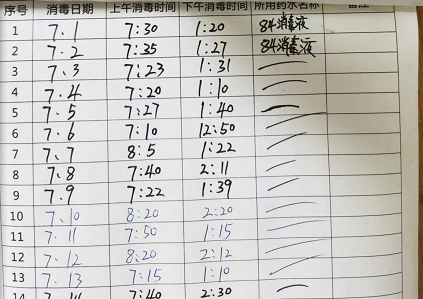 序号 消毒日期 上午消毒时间 下午消毒时间 所用药水名称 备注
1 7、1 7:30 1:20 84消毒液
2 7、2 7:35 1:27 84消毒液
3 7、3 7:23 1:31
4 7、4 7:20 1:10
5 7、5 7:27 1:40
6 7、6 7:10 12:50
7 7、7 8:5 1:22
8 7、8 7:40 2:11
9 7、9 7:22 1:39
10 7、10 8:20 2:20
11 7、11 7:50 1:15
12 7、12 8:20 2:12
13 7、13 7:15 1:10
14 7、14 7:40 2:30